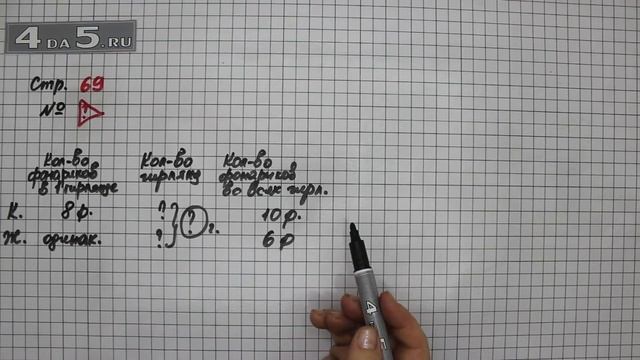 4DA5.RU
Стр. 69
№ ?
Кол-во фонариков в 1 гирлянде
Кол-во гирлянд
Кол-во фонариков во всех гирл.
К. 8 ф. ? 10 ф.
? г.
Ж. одинак. ? 6 ф
4